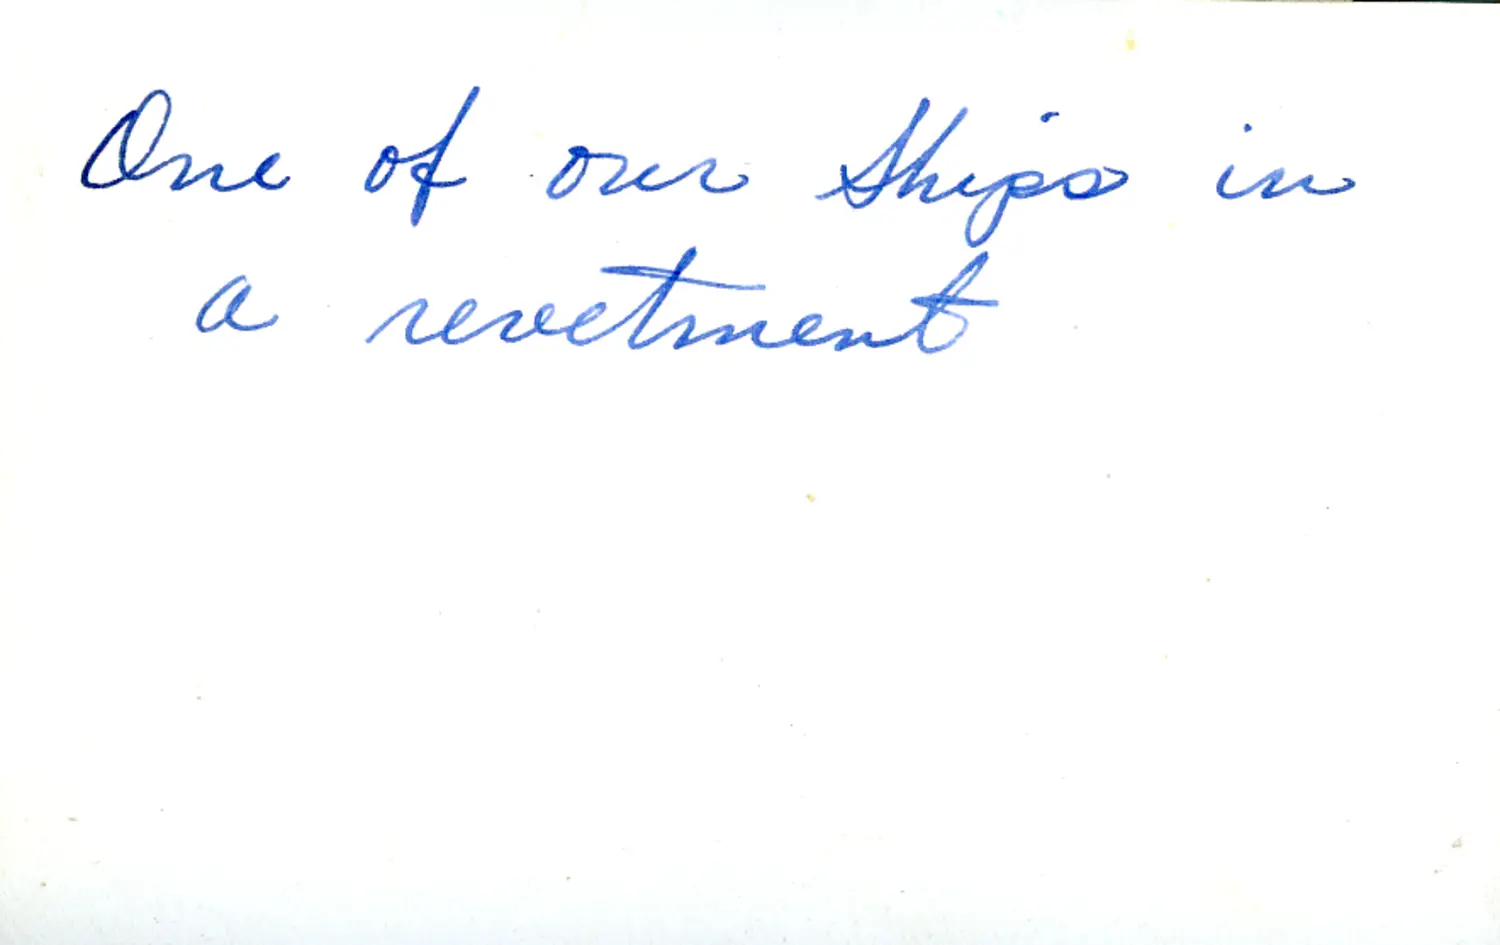 One of our Ships in
a revetment